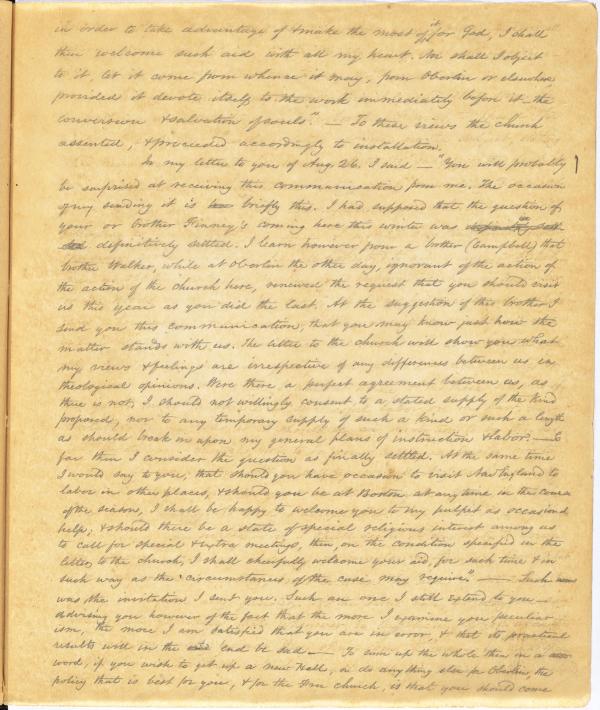 in order to take advantage of & make the most of it for God, I shall
then welcome such aid with all my heart. Nor shall I object
to it, let it come from whence it may, from Oberlin or elsewhere
provided it devote itself to the work immediately before it – the
conversion & salvation of souls." — To these views the church
assented, & proceeded accordingly to installation.
In my letter to you of Aug. 26. I said — "You will probably
be surprised at receiving this communication from me. The occasion
of my sending it is briefly this. I had supposed that the question of
your or brother Finney's coming here this winter was
definitively settled. I learn however from a brother (Campbell) that
brother Walker, while at Oberlin the other day, ignorant of the action of
the action of the church here, renewed the request that you should visit
us this year as you did the last. At the suggestion of this brother I
send you this communication, that you may know just how the
matter stands with us. The letter to the church will show you what
my views & feelings are irrespective of any differences between us in
theological opinions. Were there a perfect agreement between us, as
there is not, I should not willingly consent to a stated supply of the kind
proposed, nor to any temporary supply of such a kind or such a length
as should break in upon my general plans of instruction & labor. — So
far then I consider the question as finally settled. At the same time
I would say to you, that should you have occasion to visit New England to
labor in other places, & should you be at Boston at any time in the course
of the season, I shall be happy to welcome you to my pulpit as occasional
help; & should there be a state of special religious interest among us
to call for special & extra meetings, then, on the condition specified in the
letter to the church, I shall cheerfully welcome your aid, for such time & in
such way as the circumstances of the case may require." — Such
was the invitation I sent you. Such an one I still extend to you —
advising you however of the fact that the more I examine your peculiar
ism, the more I am satisfied that you are in error, & that its practical
results will in the end be sad — To sum up the whole then in a
word, if you wish to get up a new Hall, or do anything else for Oberlin, the
policy that is best for you, & for the Free church, is that you should come